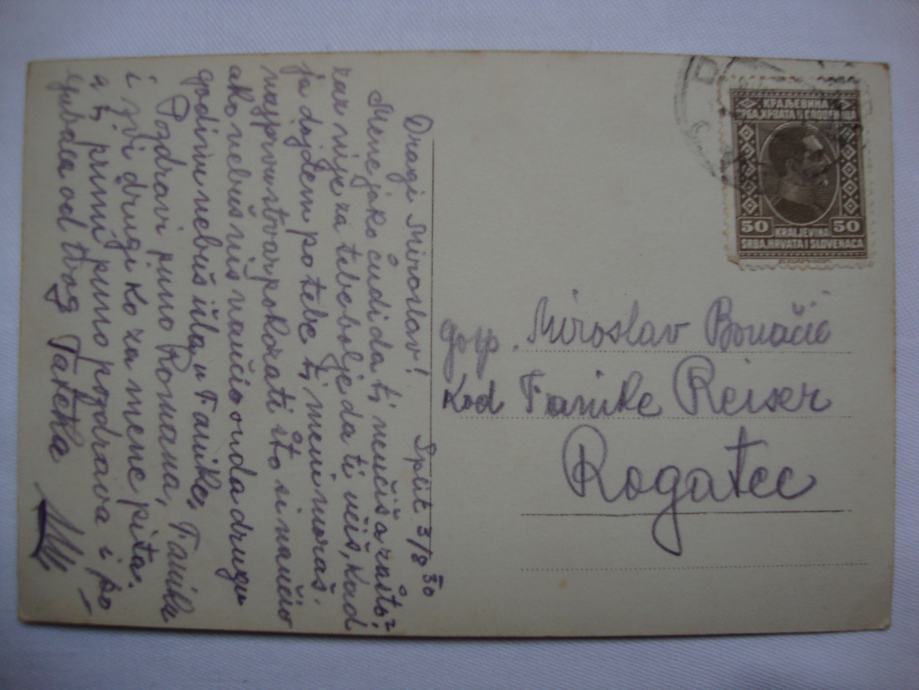 Split 3/8 30
Dragi Miroslav!
Mene jako čudi da ti neučiš a zašto?
zar nije za tebe bolje da ti učiš, kad
ja dojdem po tebe ti meni moraš
najprvu stvar pokazati što si naučio
ako nebuš niš naučio onda drugu
godinu nebuš išla u Fanike,
Pozdravi puno Romana, Fanike
i svi drugi ko za mene pita.
a ti primi puno pozdrava i po
ljubca od tvog Tateka
gosp. Miroslav Bonačić
Kod Fanike Reiser
Rogatec
КРАЉЕВИНА
СРБА, ХРВАТА И СЛОВЕНАЦА
50 50
KRALJEVINA
SRBA, HRVATA I SLOVENACA